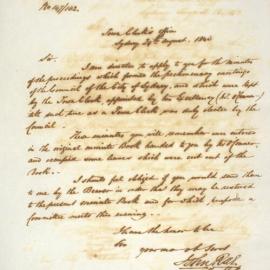 Town Clerk's Office
Sydney 29th August. 184
Sir.
I am desirous to apply to you for the Minutes
of the proceedings which passed the preliminary meetings
of the Council of the City of Sydney, and which were kept
by the Town Clerk appointed by his Excellency
until such time as a Town Clerk was duly elected by the
Council.
These minutes you will remember were entered
in the original minute Book handed to you by
and occupied some leaves which were cut out of the
Book.
I should feel obliged if you would send them
to me by the Bearer in order that they may be restored
to the present minute Book and for which purpose a
Committee meets this morning.
I have the honor to be
Sir
your mo ob Servt
John